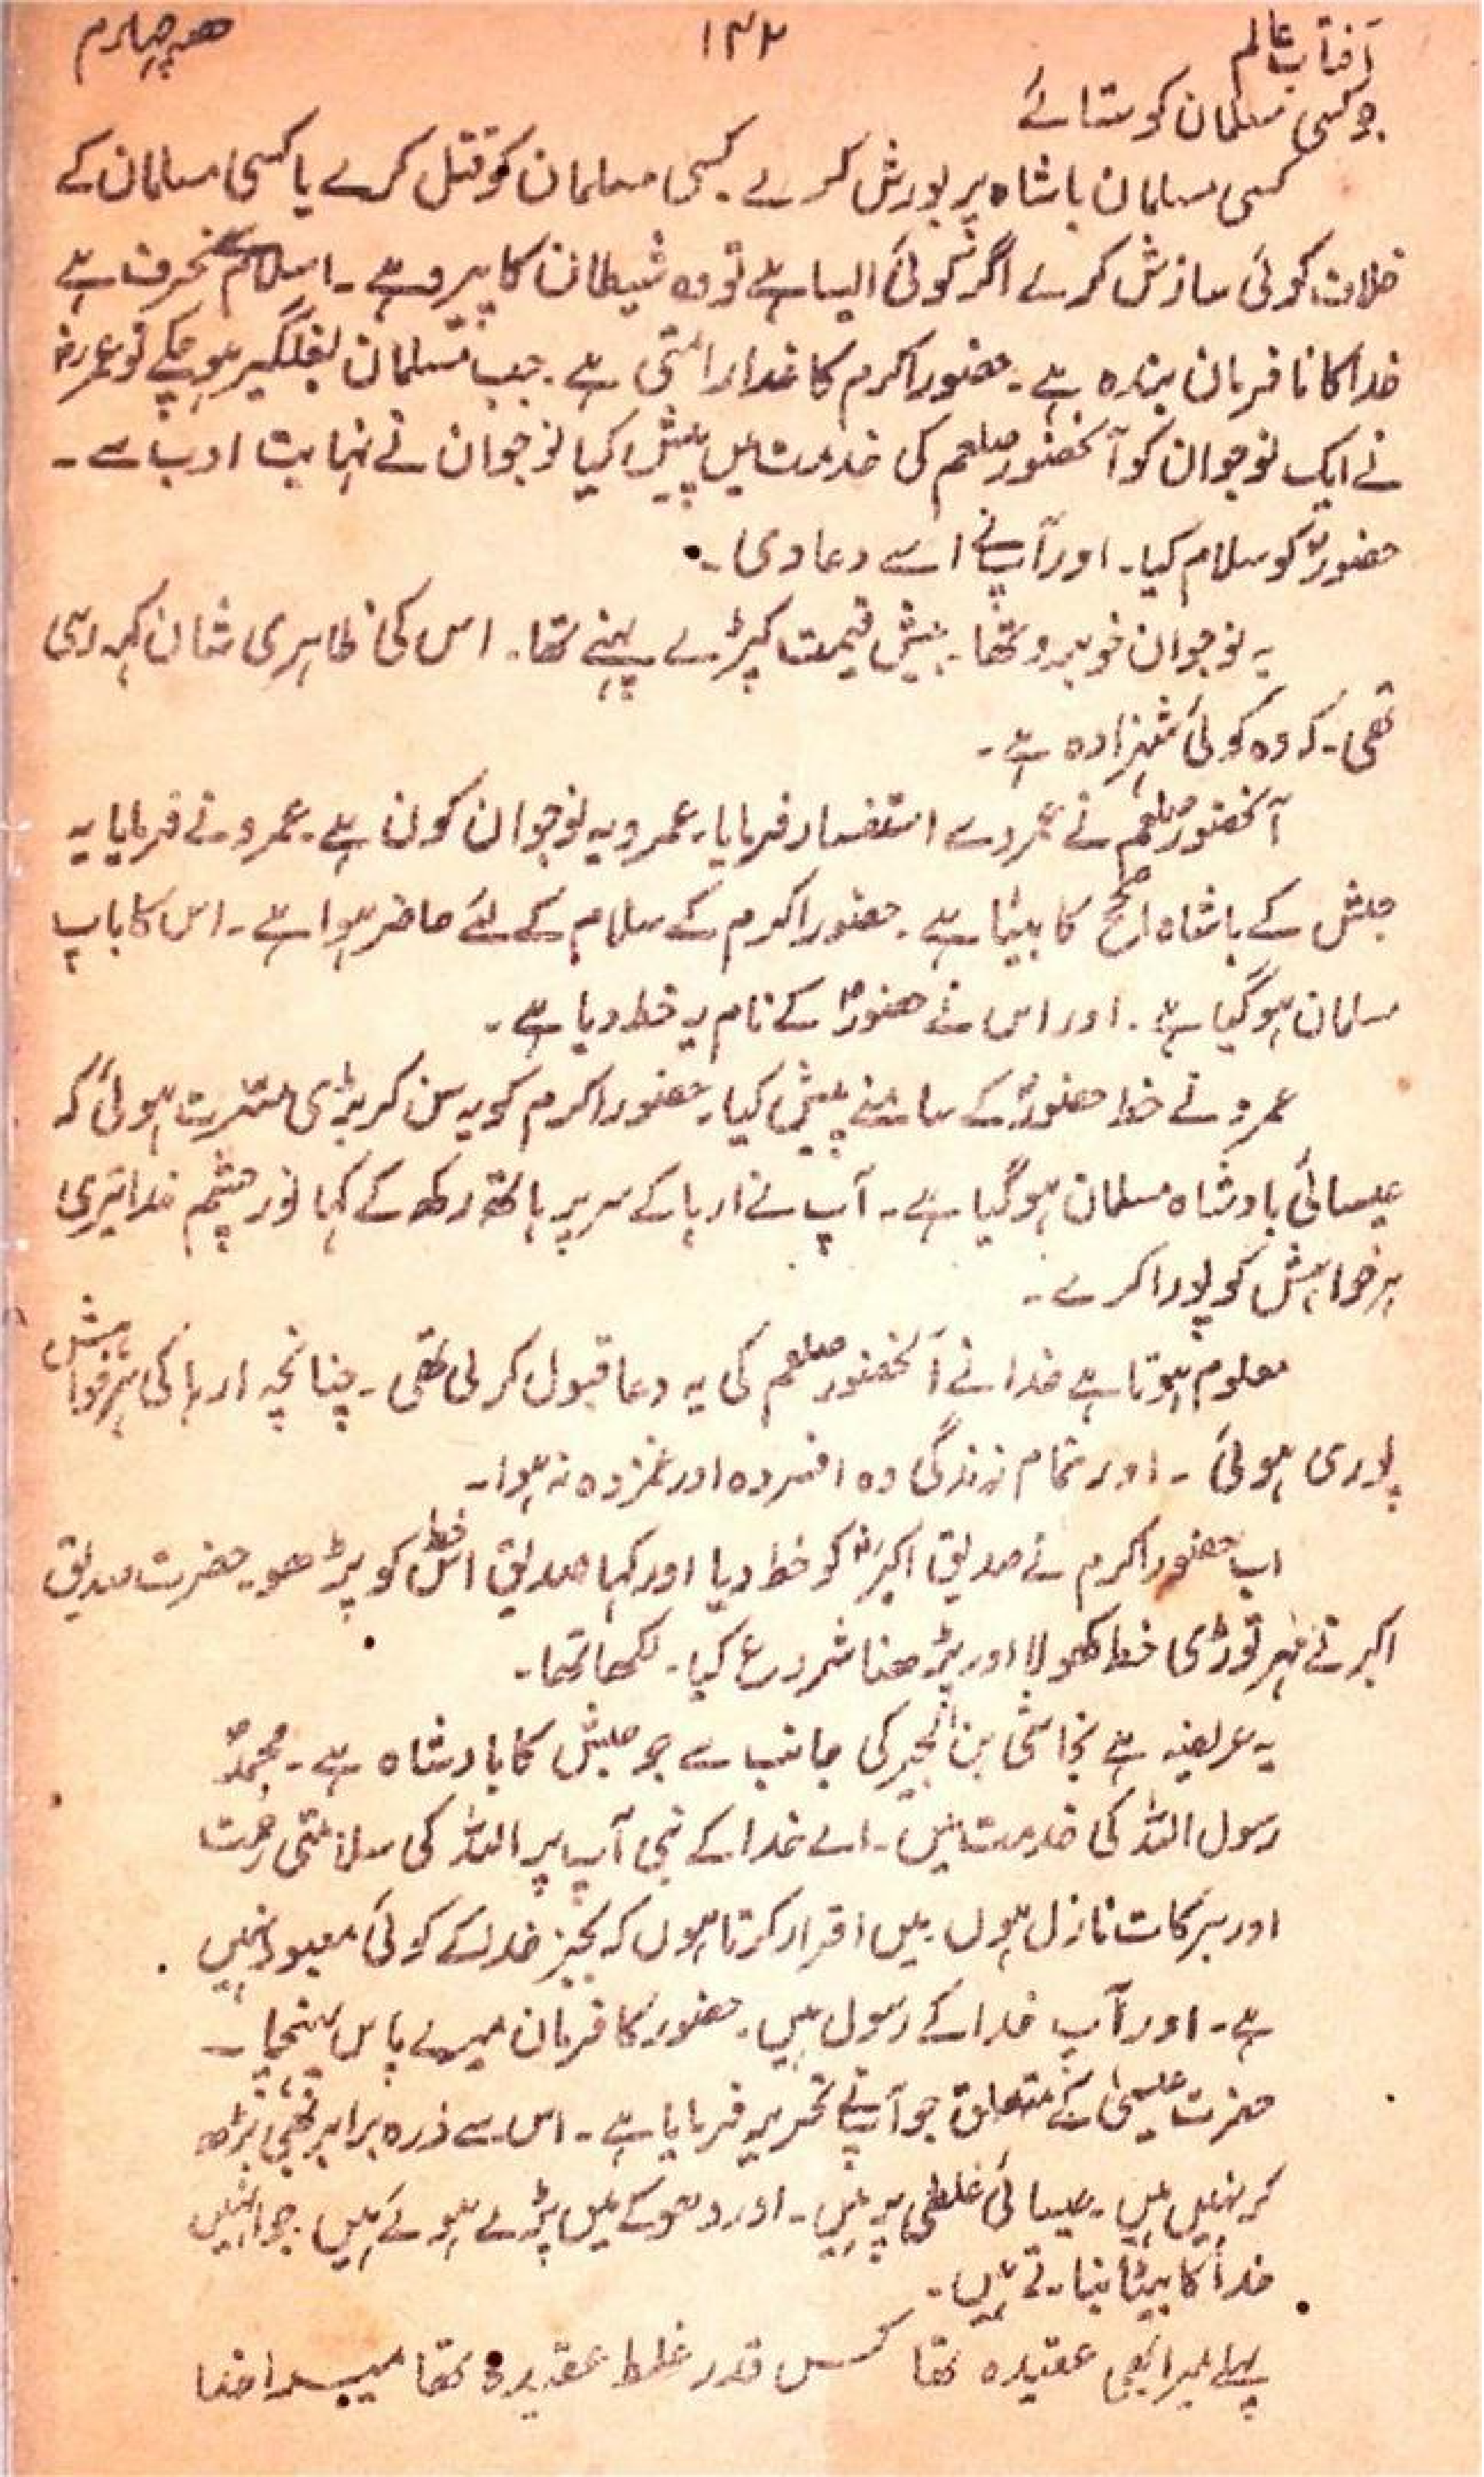 آفتاب عالم ۱۴۲ حصہ چہارم
جو کسی مسلمان کو ستائے
کسی مسلمان باشاہ پر یورش کرے۔ کسی مسلمان کو قتل کرے یا کسی مسلمان کے
خلاف کوئی سازش کرے اگر کوئی ایسا ہے تو وہ شیطان کا پیرو ہے۔ اسلام سے منحرف ہے
خدا کا نافرمان بندہ ہے۔ حضور اکرم کا غدار امتی ہے۔ جب مسلمان بغلگیر ہو چکے تو عمرو
نے ایک نوجوان کو آنحضور صلعم کی خدمت میں پیش کیا نوجوان نے نہایت ادب سے۔
حضورؐ کو سلام کیا۔ اور آپ نے اسے دعا دی۔
یہ نوجوان خوبرو تھا۔ بیش قیمت کپڑے پہنے تھا۔ اس کی ظاہری شان کہہ رہی
تھی۔ کہ وہ کوئی شہزادہ ہے۔
آنحضور صلعم نے عمرو سے استفسار فرمایا۔ عمرو یہ نوجوان کون ہے۔ عمرو نے فرمایا یہ
حبش کے باشاہ اصحح کا بیٹا ہے۔ حضور اکرم کے سلام کے لئے حاضر ہوا ہے۔ اس کا باپ
مسلمان ہو گیا ہے۔ اور اس نے حضورؐ کے نام یہ خط دیا ہے۔
عمرو نے خط حضورؐ کے سامنے پیش کیا۔ حضور اکرم کو یہ سن کر بڑی مسرت ہوئی کہ
عیسائی بادشاہ مسلمان ہو گیا ہے۔ آپ نے ارہا کے سر پر ہاتھ رکھ کے کہا نور چشم خدا تیری
ہر خواہش کو پورا کرے۔
معلوم ہوتا ہے خدا نے آنحضور صلعم کی یہ دعا قبول کر لی تھی۔ چنانچہ ارہا کی ہر خواہش
پوری ہوئی۔ اور تمام زندگی وہ افسردہ اور غمزدہ نہ ہوا۔
اب حضور اکرم نے صدیق اکبرؓ کو خط دیا اور کہا صدیق اس خط کو پڑھو۔ حضرت صدیق
اکبر نے مہر توڑی خط کھولا اور پڑھنا شروع کیا۔ لکھا تھا۔
یہ عریضہ ہے نجاشی بن الجبر کی جانب سے جو حبش کا بادشاہ ہے۔ محمدؐ
رسول اللہ کی خدمت میں۔ اے خدا کے نبی آپ پر اللہ کی سلامتی رحمت
اور برکات نازل ہوں۔ میں اقرار کرتا ہوں کہ بجز خدا کے کوئی معبود نہیں
ہے۔ اور آپ خدا کے رسول ہیں۔ حضور کا فرمان میرے پاس پہنچا۔
حضرت عیسیٰ کے متعلق جو آپ نے تحریر فرمایا ہے۔ اس سے ذرہ برابر بھی بڑھ
کر نہیں ہیں۔ عیسائی غلطی پر ہیں۔ اور دھوکے میں پڑے ہوئے ہیں۔ جو انہیں
خدا کا بیٹا بتاتے ہیں۔
پہلے میرا بھی عقیدہ تھا کس قدر غلط عقیدہ تھا میرا خدا